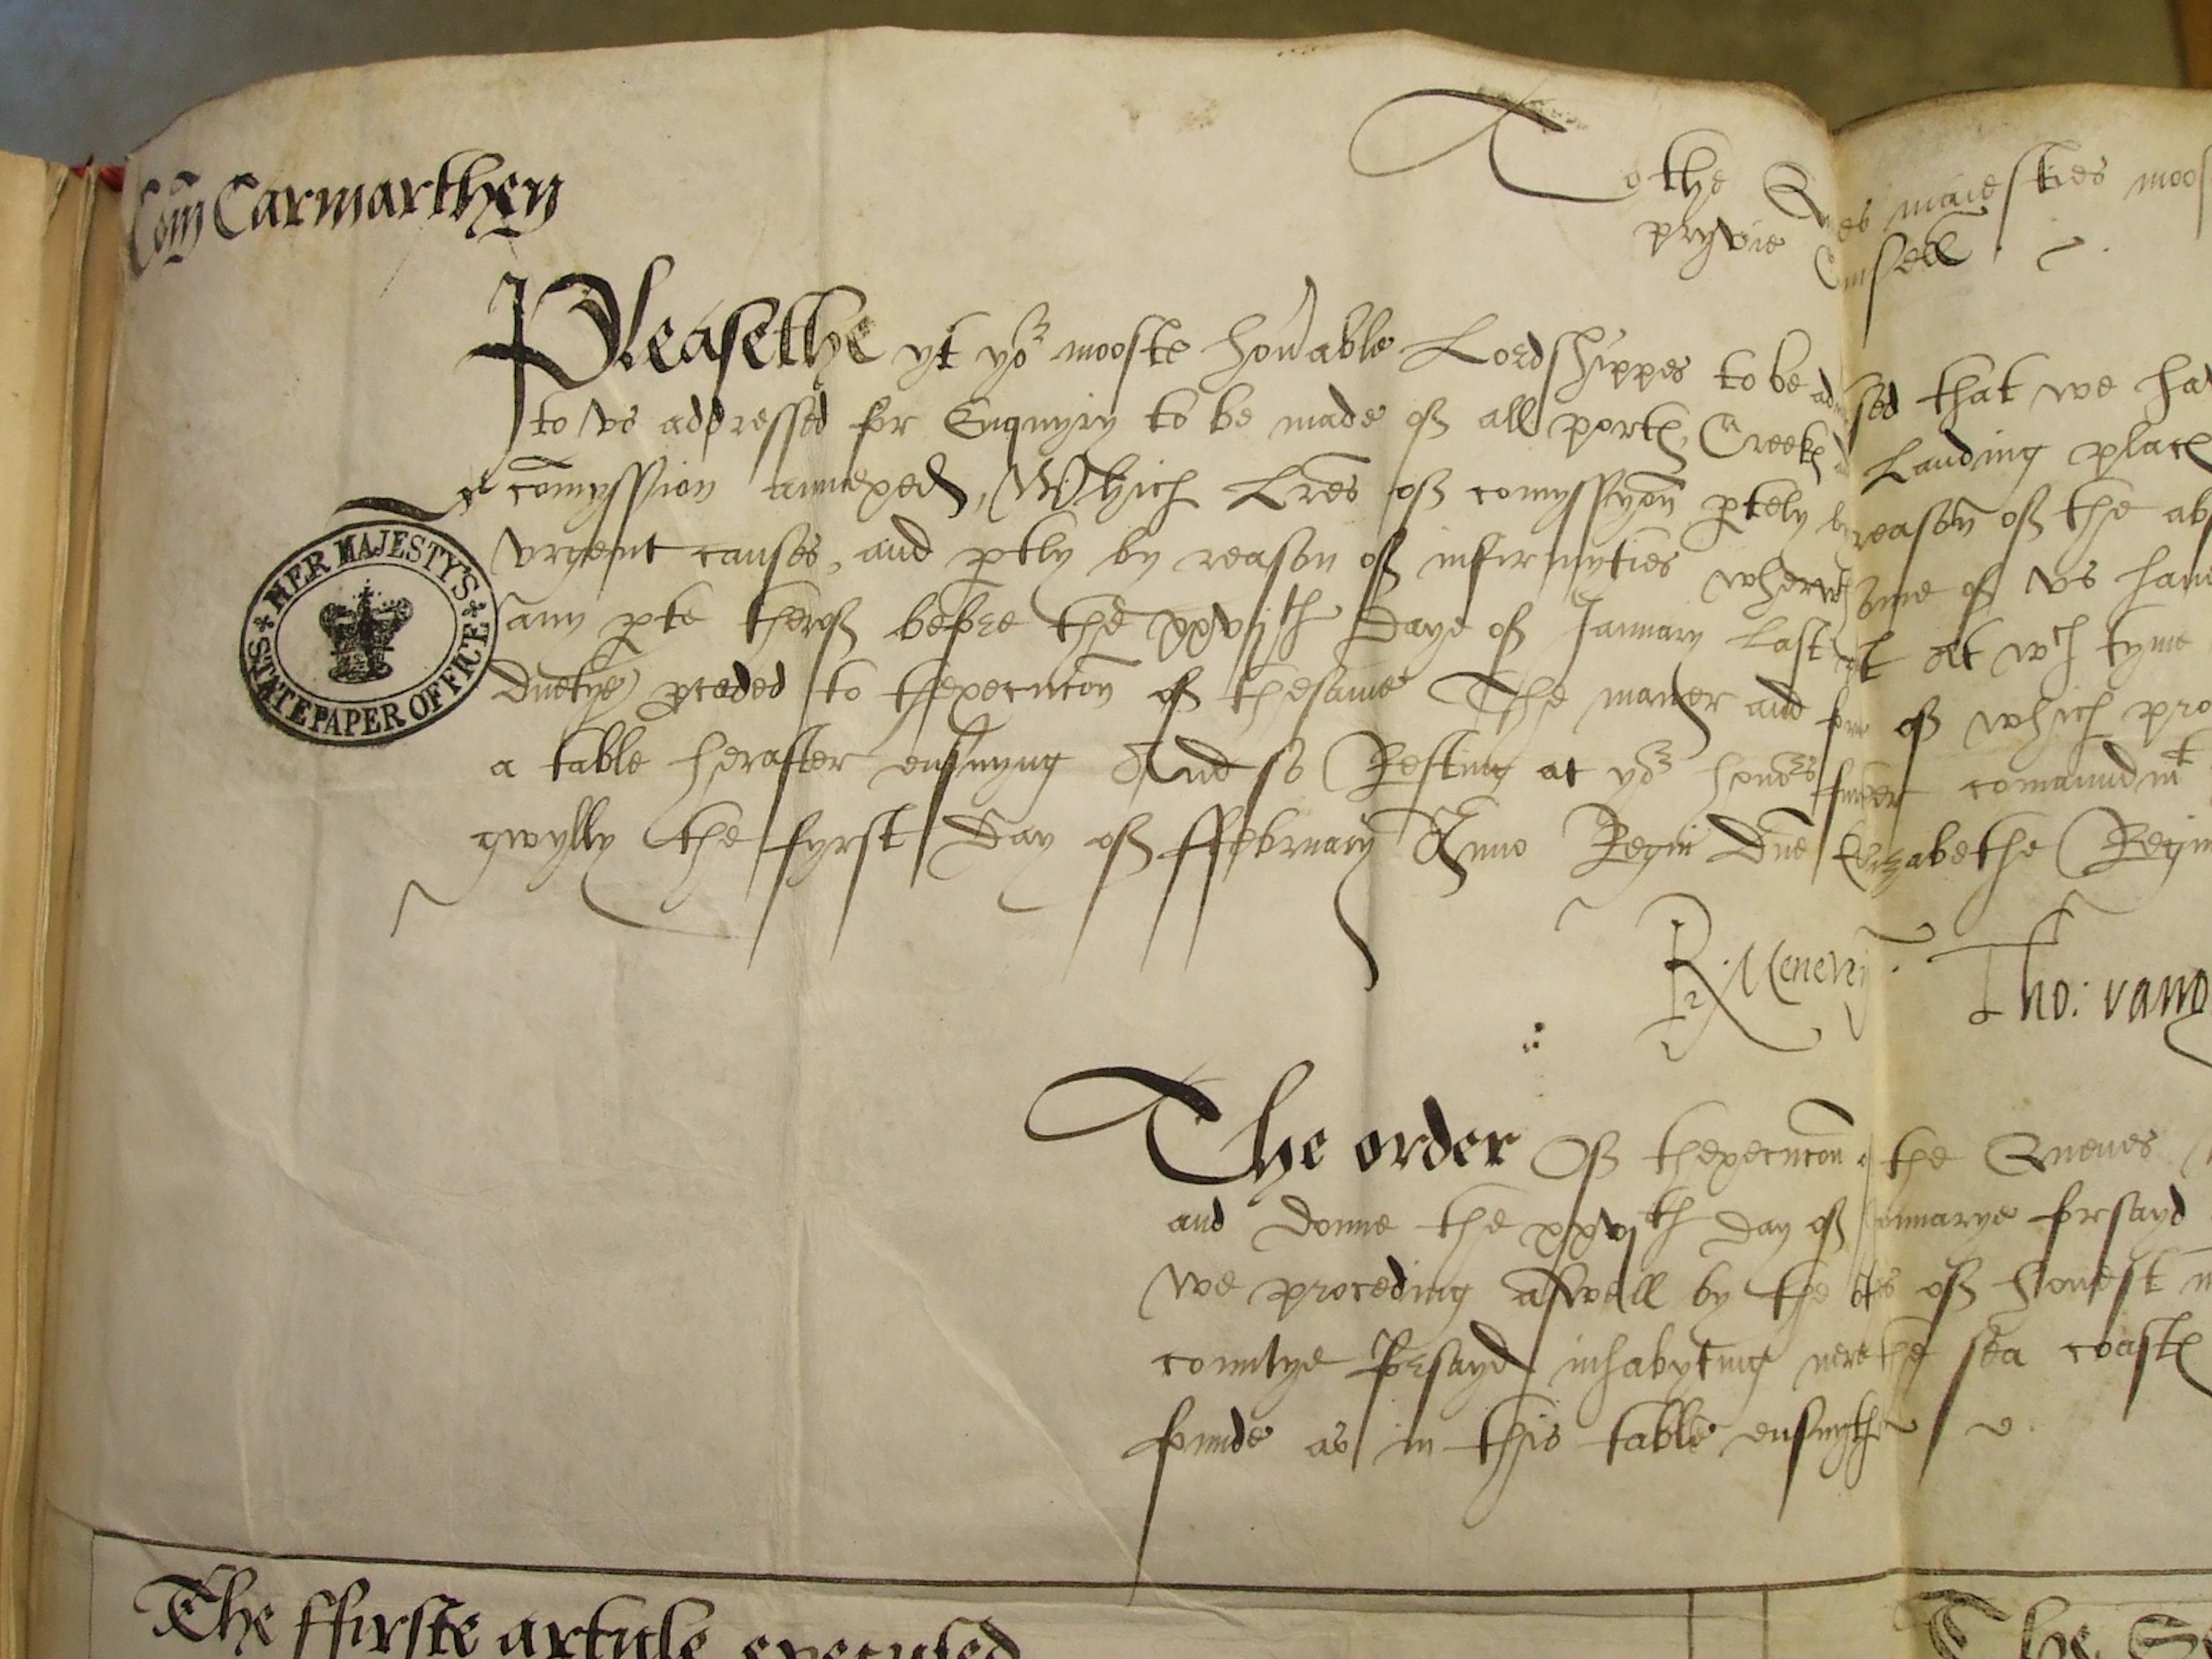 Com̄ Carmarthen
To the Quenes maiesties moos
pryvie Counsell
Pleasethe yt yor mooste honable Lordshippes to be advised that we ha
to vs addressed for Enquyry to be made of all portes, Creekes and Landing places
comyssion annexed, Which Lres of comyssyon ptely by reason of the abs
vrgent causes, and ptly by reason of infirmyties wherwth some of vs haue
any pte therof before the xxvjth daye of January Last At wch tyme
Duetye pceded to thexecucon of thesame The maner and forme of which pro
a table herafter ensuyng And so Resting at yor honors further comaundmt
gwylly the fyrst Day of ffebruary Anno Regni Dne Elizabethe Regin
R. Meneven. Tho: vaug
The order Of thexecucon of the Quenes
and donne the xxvjth day of Jannarye forsayd
we proceding aswell by the othes of honest m
countye forsayd inhabyting nere the sea coastes
founde as in this table ensuythe
HER MAJESTY'S
STATE PAPER OFFICE
The ffirste article executed
The Se